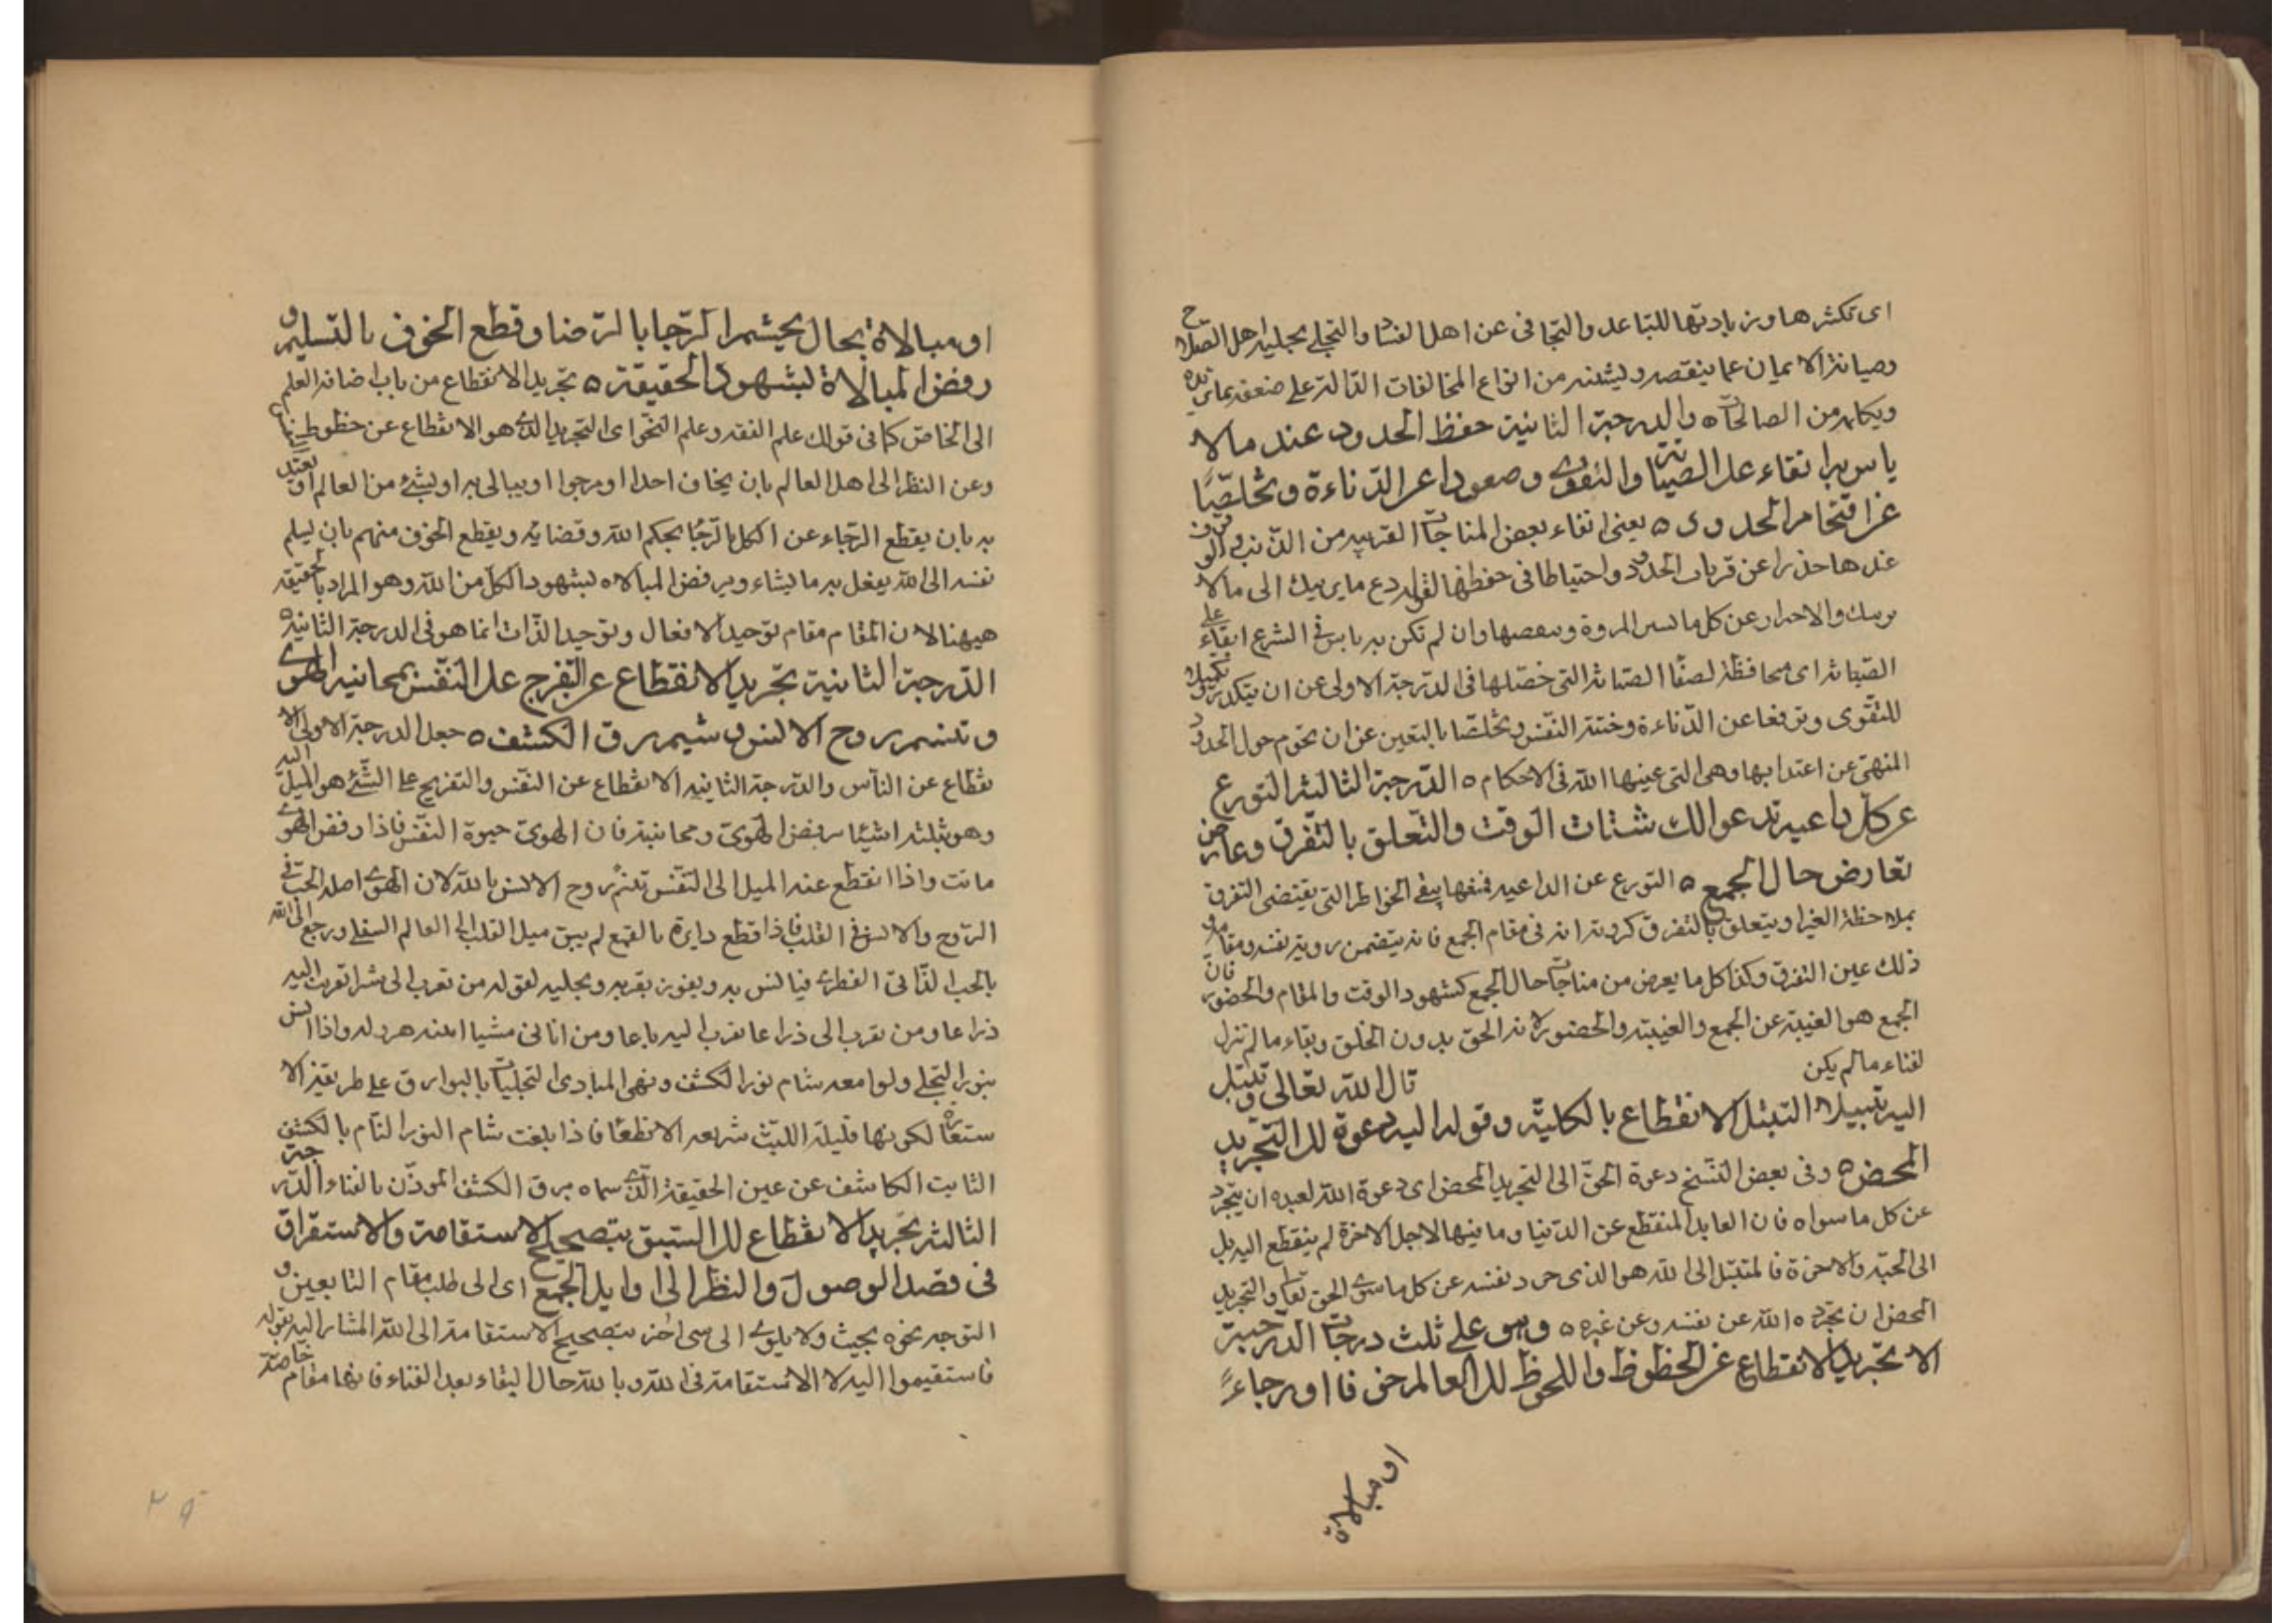 اى تكثرها وزيادتها للتباعد والتجافى عن اهل الفساد والتجلى بحلية اهل الصلاح
وصيانة الايمان عما ينقصه ويشينه من انواع المخالفات الدالة على ضعفه بما يزيده
ويكمله من الصالحات ٥ والدرجة الثانية حفظ الحدود عند ما لا
باس به ابقاء على الصيانة والتقوى وصعودا عن الدناءة وتخلصًا
عن اقتحام الحدود ٥ يعنى اتقاء بعض المناجات القريبة من الذنب والوقوف
عندها حذرا عن قربان الحدود واحتياطا فى حفظها لقوله دع ما يريبك الى ما لا
يريبك والاحتراز عن كل ما المروة وان لم تكن به باس فى الشرع ابقاء على
الصيانة اى محافظة لصفا الصيانة التى حصلها فى الدرجة الاولى عن ان يتكدر وتكميلا
للتقوى وترفعا عن الدناءة وخسة النفس وتخلصا بالتعين عن ان تحوم حول الحدود
المنهى عن اعتدا بها وهى التى عينها الله فى الاحكام ٥ الدرجة الثالثة التورع
عن كل داعية تدعو الى شتات الوقت والتعلق بالتفرق وعارض
تعارض حال الجمع ٥ التورع عن الداعيه فنفها ينفى الخواطر التى يقتضى التفرق
بملاحظة الغير او يتعلق بالتفرق كرديته انه فى مقام الجمع فانه يتضمن روية نفسه ومقامه و
ذلك عين التفرق وكذا كل ما يعرض من مناجات حال الجمع كشهود الوقت والمقام والحضور فان
الجمع هو الغيبة عن الجمع والغيبة والحضور لانه الحق بدون الخلق وبقاء ما لم تزل
لفناء ما لم يكن قال الله تعالى وتبتل
اليه تبتيلا ٥ التبتل الانقطاع بالكلية وقوله اليه دعوة الى التجريد
المحض ٥ وفى بعض النسخ دعوة الحق الى التجريد المحض اى دعوة الله لعبده ان يتجرد
عن كل ما سواه فان العابد المنقطع عن الدنيا وما فيها لاجل الاخرة لم ينقطع اليه بل
الى الجنة والاخرة فالمتبتل الى الله هو الذى جرد نفسه عن كل ما سوى الحق تعا والتجريد
المحض ان تجرده الله عن نفسه وعن غيره ٥ وهو على ثلث درجات الدرجة
الا تجريد الانقطاع عن الحظوظ واللحوظ الى العالم خوفا او رجاءً
او مبالاة
او مبالاة بحال بحسم الرجا بالرضا وقطع الخوف بالتسليم و
رفض المبالاة لشهود الحقيقة ٥ تجريد الانقطاع من باب اضافة العام
الى الخاص كما فى قولك علم الفقه وعلم النحو اى التجريد الذى هو الانقطاع عن حظوظ
وعن النظر الى اهل العالم بان يخاف احدا او يرجوا او يبالى به او بشئ من العالم او يعتد
به بان يقطع الرجاء عن الكل بالرضا بحكم الله وقضايه ويقطع الخوف منهم بان يسلم
نفسه الى الله يفعل به ما يشاء ويرفض المبالاه لشهود الكل من الله وهو المراد بالحقيقه
هيهنا لان المقام مقام توحيد الافعال وتوحيد الذات انما هو فى الدرجة الثانية ٥
الدرجة الثانية تجريد الانقطاع عن التفرج على النفس بمجانبة الهوى
وتنسم روح الانس وشيم برق الكشف ٥ جعل الدرجة الاولى الا
نقطاع عن الناس والدرجة الثانيه الانقطاع عن النفس والتفريج على الشئ هو الميل اليه
وهو بثلثة اشيئا برفض الهوى ومجانبته فان الهوى حيوة النفس فاذا رفض الهوى
ماتت واذا انقطع عنه الميل الى النفس تنسم روح الانس بالله لان الهوى اصله الحب فى
الروح والانس فى القلب فاذا قطع دايرة بالقمع لم يبق ميل القلب الى العالم السفلى ورجع الى الله
بالحب الذاتى الفطرى فيانس به ويفوز بقربه وبجليه لقوله من تقرب الى شبرا تقربت اليه
ذراعا ومن تقرب الى ذراعا تقرب اليه باعا ومن اتانى مشيا اتيته هرولة واذا انس
بنور التجلى ولوامعه شام نور الكشف ونهى المبادى التجليات بالبوارق على طريقة الا
ستعارة لكونها قليلة اللبث سريعه الانطفا فاذا بلغت شام النور التام بالكشف
الثابت الكاشف عن عين الحقيقة الذى سماه برق الكشف الموذن بالفناء الدرجة
الثالثة تجريد الانقطاع الى السبق بتصحيح الاستقامة والاستغراق
فى قصد الوصول والنظر الى اوايل الجمع اى الى طلب مقام التابعين و
التوجه نحوه بحيث ولا يلوى الى شى اخر بتصحيح الاستقامة الى الله المشار اليه بقوله
فاستقيموا اليه لا الاستقامة فى الله وبالله حال البقاء بعد الفناء فانها مقام خاصة